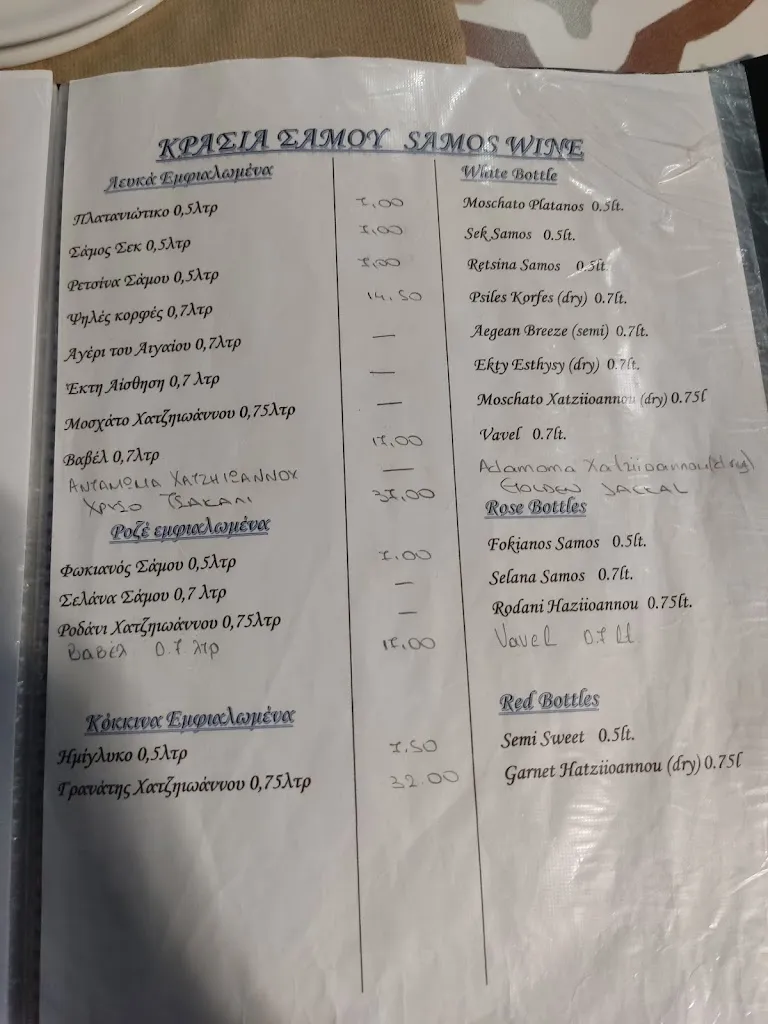 ΚΡΑΣΙΑ ΣΑΜΟΥ SAMOS WINE
Λευκά Εμφιαλωμένα White Bottle
Πλατανιώτικο 0,5λτρ 7,00 Moschato Platanos 0.5lt.
Σάμος Σεκ 0,5λτρ 7,00 Sek Samos 0.5lt.
Ρετσίνα Σάμου 0,5λτρ 7,00 Retsina Samos 0.5lt.
Ψηλές κορφές 0,7λτρ 14.50 Psiles Korfes (dry) 0.7lt.
Αγέρι του Αιγαίου 0,7λτρ — Aegean Breeze (semi) 0.7lt.
Έκτη Αίσθηση 0,7 λτρ — Ekty Esthysy (dry) 0.7lt.
Μοσχάτο Χατζηιωάννου 0,75λτρ — Moschato Xatziioannou (dry) 0.75l
Βαβέλ 0,7λτρ 17,00 Vavel 0.7lt.
ΑΝΤΑΜΩΜΑ ΧΑΤΖΗΙΩΑΝΝΟΥ — Adamoma Xatziioannou (dry)
ΧΡΥΣΟ ΤΣΑΚΑΛΙ 37,00 GOLDEN JACKAL
Ροζέ εμφιαλωμένα Rose Bottles
Φωκιανός Σάμου 0,5λτρ 7.00 Fokianos Samos 0.5lt.
Σελάνα Σάμου 0,7 λτρ — Selana Samos 0.7lt.
Ροδάνι Χατζηιωάννου 0,75λτρ — Rodani Haziioannou 0.75lt.
Βαβέλ 0.7 λτρ 17,00 Vavel 0.7 lt
Κόκκινα Εμφιαλωμένα Red Bottles
Ημίγλυκο 0,5λτρ 7.50 Semi Sweet 0.5lt.
Γρανάτης Χατζηιωάννου 0,75λτρ 32.00 Garnet Hatziioannou (dry) 0.75l